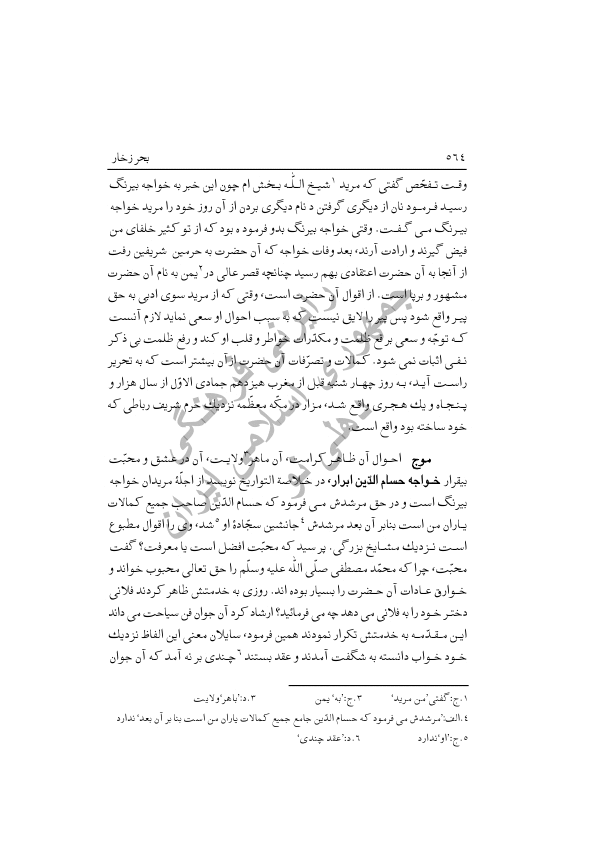 ۵۶٤ بحر زخار
وقـت تـفحّص گفتی کـه مرید ۱شیـخ اللّـه بـخش ام چون این خبر به خواجه بیرنگ
رسیـد فـرمـود نان از دیگری گرفتن د نام دیگری بردن از آن روز خود را مرید خواجه
بیـرنگ مـی گـفـت. وقتی خواجه بیرنگ بدو فرموده بود که از تو کثیر خلفای من
فیض گیرند و ارادت آرند، بعد وفات خواجـه که آن حضرت به حرمین شریفین رفت
از آنجا به آن حضرت اعتقادی بهم رسید چنانچه قصر عالی در۲یمن به نام آن حضرت
مشهور و برپا است. از اقوال آن حضرت است، وقتی که از مرید سوی ادبی به حق
پیـر واقع شود پس پیر را لایق نیست که به سبب احوال او سعی نماید لازم آنست
کـه توجّه و سعی بر قع ظلمت و مکدّرات خواطر و قلب او کند و رفع ظلمت بی ذکر
نـفـی اثبات نمی شود. کـمالات و تصرّفات آن حضرت از آن بیشتر است که به تحریر
راسـت آیـد، بـه روز چهـار شنبه قبل از مغرب هیزدهم جمادی الاوّل از سال هزار و
پـنـجـاه و یك هـجـری واقـع شـد، مـزار در مکّه معظّمه نزدیك حرم شریف رباطی که
خود ساخته بود واقع است.
موج احـوال آن ظـاهـر کـرامت، آن ماهر۳ولایـت، آن در عشق و محبّت
بیقرار خـواجه حسام الدّین ابرار، در خـلاصة التواریخ نویسد از اجلّۀ مریدان خواجه
بیرنگ است و در حق مرشدش مـی فرمـود که حسام الدّین صاحب جمیع کمالات
یـاران من است بنابر آن بعد مرشدش ٤جانشین سجّادۀ او ۵شد، وی را اقوال مطبوع
اسـت نـزدیك مشـایخ بزرگی. پر سید که محبّت افضل است یا معرفت؟ گفت
محبّت، چرا که محمّد مصطفی صلّی اللّه علیه وسلّم را حق تعالی محبوب خواند و
خـوارق عـادات آن حـضرت را بسیار بوده اند. روزی به خدمتش ظاهر کردند فلانی
دختـر خـود را به فلانی می دهد چه می فرمائید؟ ارشاد کرد آن جوان فن سیاحت می داند
ایـن مـقـدّمـه به خدمتـش تکرار نمودند همین فرمود، سایلان معنی این الفاظ نزدیك
خـود خـواب دانسته به شگفت آمدند و عقد بستند ۶چـندی بر نه آمد کـه آن جوان
۱.ج:گفتی‘من مرید‘ ۳.ج:‘به‘ یمن ۳.د:‘باهر‘ولایت
٤.الف:‘مرشدش می فرمود که حسام الدّین جامع جمیع کمالات یاران من است بنابر آن بعد‘ ندارد
۵.ج:‘او‘ندارد ۶.د:‘عقد چندی‘
جمهوری اسلامی ایران
رایزنی فرهنگی
دهلی نو